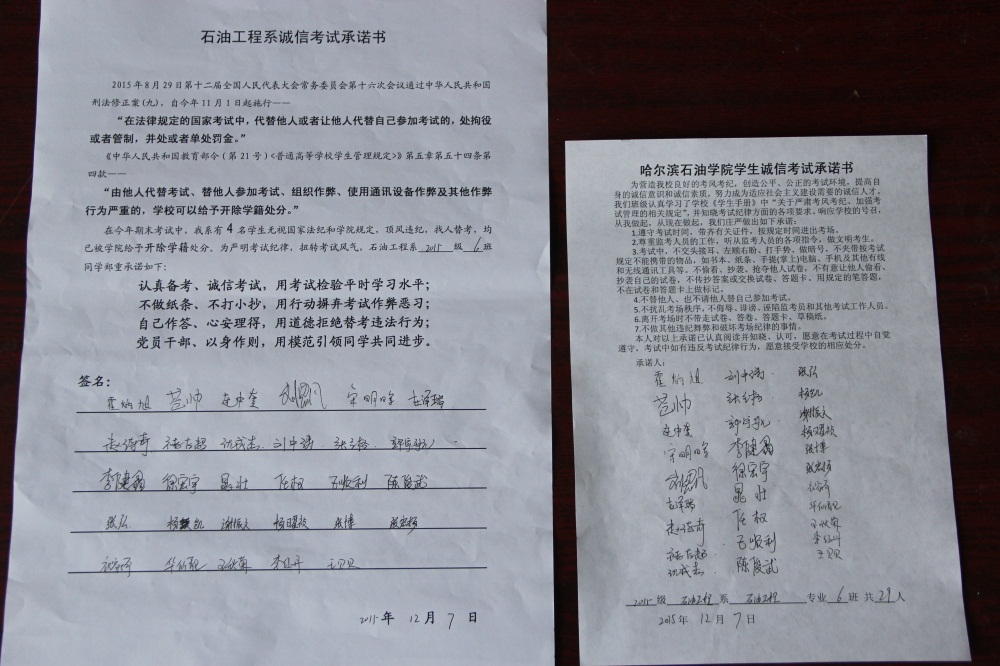 石油工程系诚信考试承诺书
2015年8月29日第十二届全国人民代表大会常务委员会第十六次会议通过中华人民共和国
刑法修正案(九)，自今年11月1日起施行——
“在法律规定的国家考试中，代替他人或者让他人代替自己参加考试的，处拘役
或者管制，并处或者单处罚金。”
《中华人民共和国教育部令（第21号）<普通高等学校学生管理规定>》第五章第五十四条第
四款——
“由他人代替考试、替他人参加考试、组织作弊、使用通讯设备作弊及其他作弊
行为严重的，学校可以给予开除学籍处分。”
在今年期末考试中，我系有4名学生无视国家法纪和学院规定，顶风违纪，找人替考，均
已被学院给予开除学籍处分。为严明考试纪律，扭转考试风气，石油工程系 2015 级 6 班
同学郑重承诺如下：
认真备考、诚信考试，用考试检验平时学习水平；
不做纸条、不打小抄，用行动摒弃考试作弊恶习；
自己作答、心安理得，用道德拒绝替考违法行为；
党员干部、以身作则，用模范引领同学共同进步。
签名：
霍炳旭 范帅 宋明晗
刘中涛
李健鑫 徐宏宇 晁壮 任权 石顺利 陈俊武
张弘 杨凯 谢振文 杨曜枝 张博
2015年 12月 7日
哈尔滨石油学院学生诚信考试承诺书
为营造我校良好的考风考纪，创造公平、公正的考试环境，提高自
身的诚信意识和诚信素质，努力成为适应社会主义建设需要的诚信人才，
我们班级认真学习了学校《学生手册》中“关于严肃考风考纪、加强考
试管理的相关规定”，并知晓考试纪律方面的各项要求。响应学校的号召，
从我做起，从现在做起，我们庄严做出如下承诺：
1.遵守考试时间，带齐有关证件，按规定时间进出考场。
2.尊重监考人员的工作，听从监考人员的各项指令，做文明考生。
3.考试中，不交头接耳、左顾右盼、打手势、做暗号，不夹带按考试
规定不能携带的物品，如书本、纸条、手提(掌上)电脑、手机及其他有线
和无线通讯工具等，不偷看、抄袭、抢夺他人试卷，不有意让他人偷看、
抄袭自己的试卷，不传抄答案或交换试卷、答题卡、用规定的笔答题，
不在试卷和答题卡上做标记。
4.不替他人、也不请他人替自己参加考试。
5.不扰乱考场秩序，不侮辱、诽谤、诬陷监考员和其他考试工作人员。
6.离开考场时不带走试卷、答卷、答题卡、草稿纸。
7.不做其他违纪舞弊和破坏考场纪律的事情。
本人对以上承诺已认真阅读并知晓、认可，愿意在考试过程中自觉
遵守，考试中如有违反考试纪律行为，愿意接受学校的相应处分。
承诺人：
霍炳旭 刘中涛 张弘
范帅 杨凯
谢振文
宋明晗 李健鑫 杨曜枝
徐宏宇 张博
晁壮
任权
石顺利
陈俊武
2015 级 石油工程 系 石油工程 专业 6 班 共 29 人
2015年 12月 7日